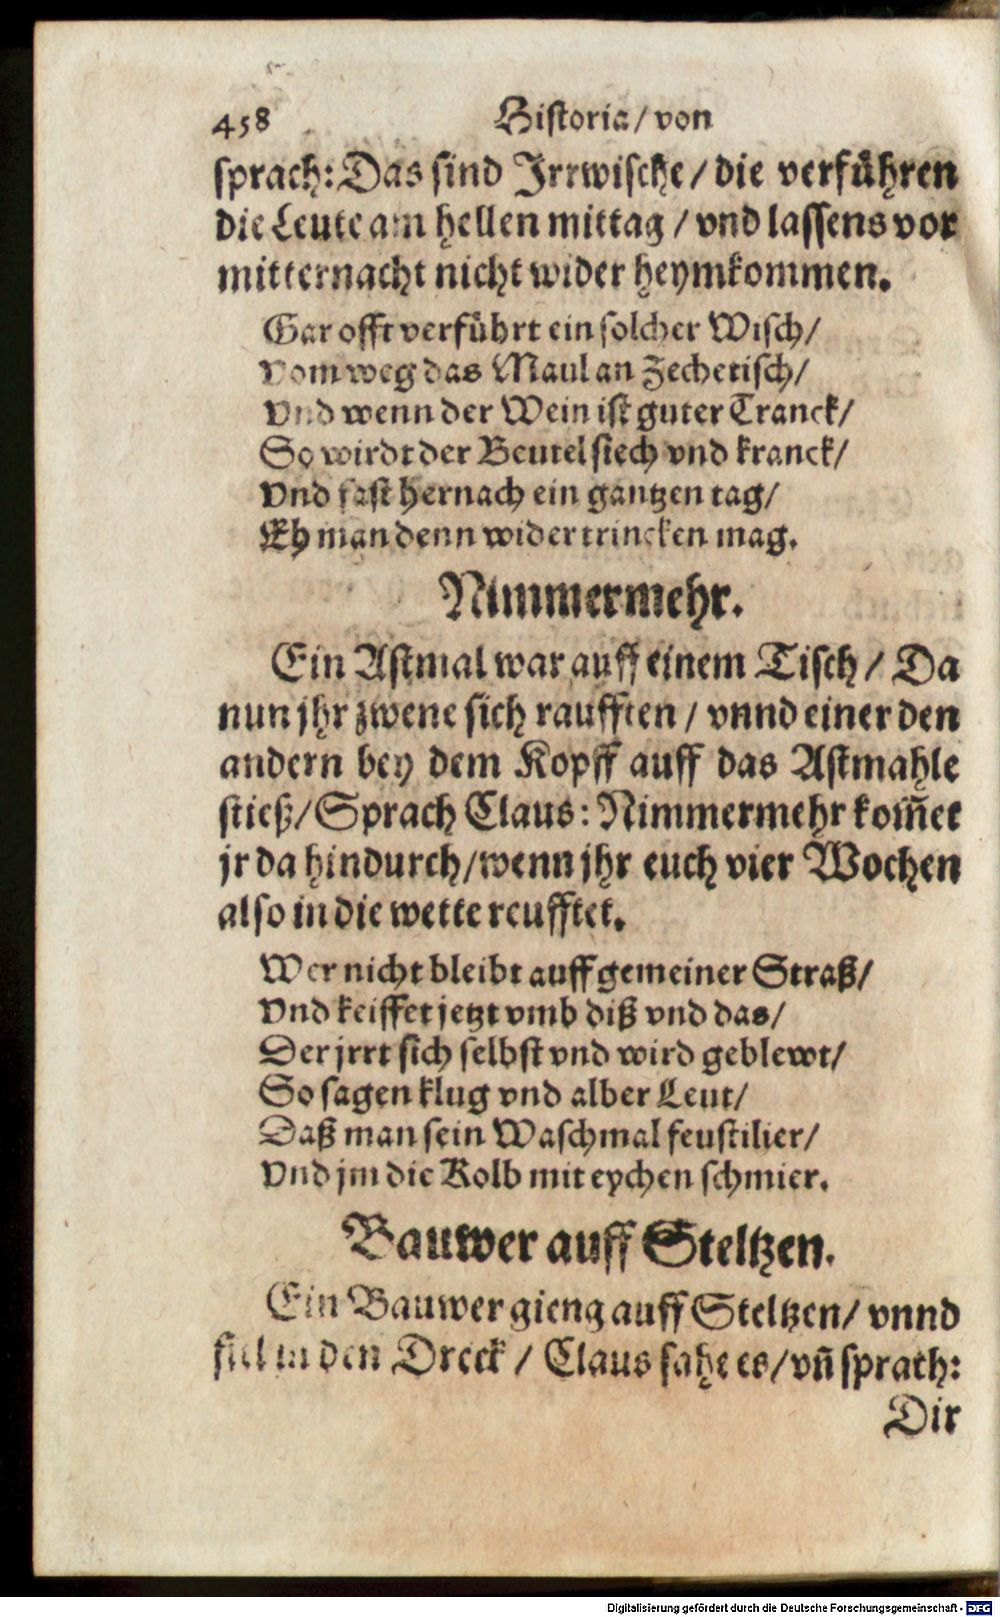 458 Historia/ von
sprach: Das sind Jrrwische/ die verführen
die Leute am hellen mittag / vnd lassens vor
mitternacht nicht wider heymkommen.
Gar offt verführt ein solcher Wisch/
Vom weg das Maul an Zechetisch/
Vnd wenn der Wein ist guter Tranck/
So wirdt der Beutel siech vnd kranck/
Vnd fast hernach ein gantzen tag/
Eh man denn wider trincken mag.
Nimmermehr.
Ein Astmal war auff einem Tisch / Da
nun jhr zwene sich raufften / vnnd einer den
andern bey dem Kopff auff das Astmahle
stieß/ Sprach Claus: Nimmermehr kom̃et
jr da hindurch/ wenn jhr euch vier Wochen
also in die wette reufftet.
Wer nicht bleibt auff gemeiner Straß/
Vnd keiffet jetzt vmb diß vnd das/
Der jrrt sich selbst vnd wird geblewt/
So sagen klug vnd alber Leut/
Daß man sein Waschmal feustilier/
Vnd jm die Kolb mit eychen schmier.
Bauwer auff Steltzen.
Ein Bauwer gieng auff Steltzen/ vnnd
fiel in den Dreck / Claus sahe es/ vñ sprach:
Dir
Digitalisierung gefördert durch die Deutsche Forschungsgemeinschaft - DFG